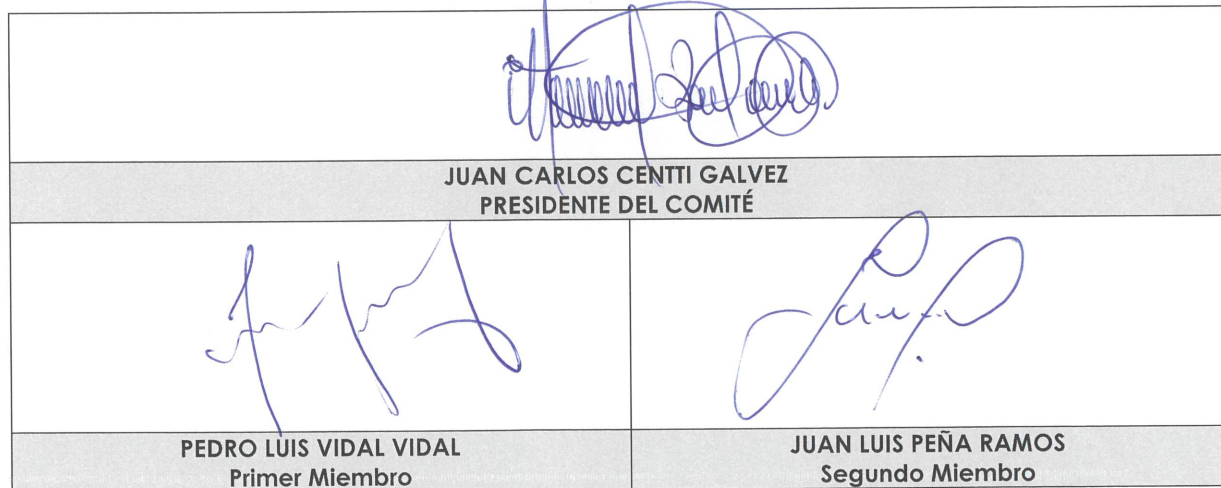 JUAN CARLOS CENTTI GALVEZ
PRESIDENTE DEL COMITÉ
PEDRO LUIS VIDAL VIDAL
Primer Miembro
JUAN LUIS PEÑA RAMOS
Segundo Miembro